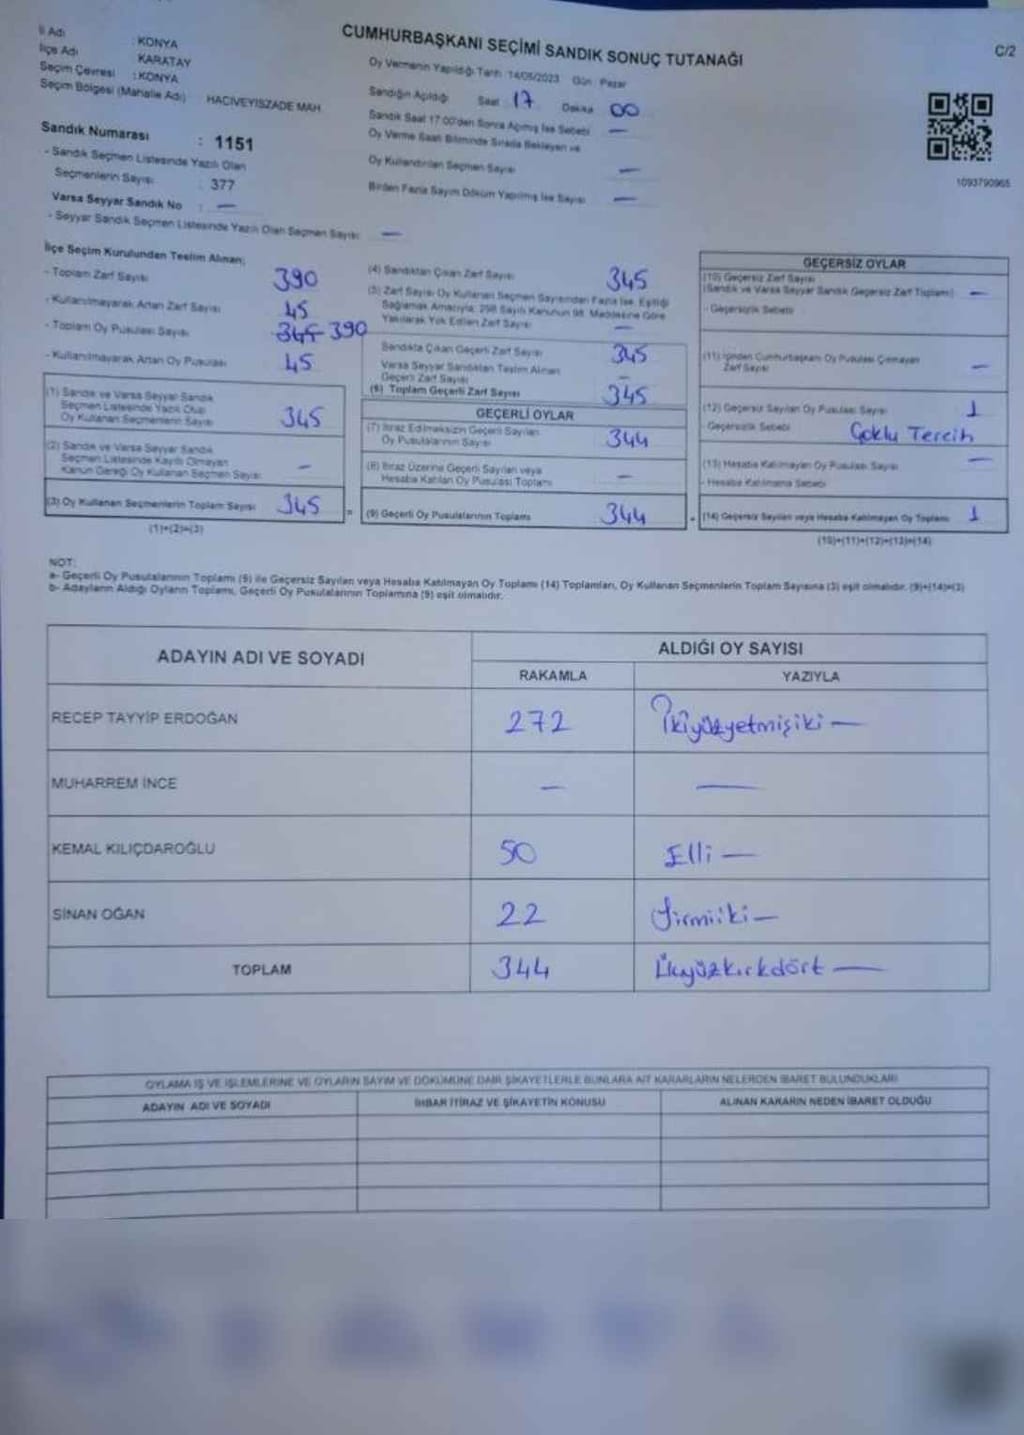 CUMHURBAŞKANI SEÇİMİ SANDIK SONUÇ TUTANAĞI
C/2
İl Adı : KONYA
İlçe Adı : KARATAY
Seçim Çevresi : KONYA
Seçim Bölgesi (Mahalle Adı) : HACIVEYİSZADE MAH.
Oy Vermenin Yapıldığı Tarih : 14/05/2023 Gün : Pazar
Sandığın Açıldığı Saat : 17 Dakika 00
Sandık Saat 17:00'den Sonra Açılmış İse Sebebi —
Oy Verme Saati Bitiminde Sırada Bekleyen ve
Oy Kullandırılan Seçmen Sayısı —
Birden Fazla Sayım Döküm Yapılmış İse Sayısı —
1093790965
Sandık Numarası : 1151
- Sandık Seçmen Listesinde Yazılı Olan
Seçmenlerin Sayısı : 377
Varsa Seyyar Sandık No : —
- Seyyar Sandık Seçmen Listesinde Yazılı Olan Seçmen Sayısı —
İlçe Seçim Kurulundan Teslim Alınan;
- Toplam Zarf Sayısı 390
- Kullanılmayarak Artan Zarf Sayısı 45
- Toplam Oy Pusulası Sayısı 345 390
- Kullanılmayarak Artan Oy Pusulası 45
(1) Sandık ve Varsa Seyyar Sandık
Seçmen Listesinde Yazılı Olup
Oy Kullanan Seçmenlerin Sayısı 345
(2) Sandık ve Varsa Seyyar Sandık
Seçmen Listesinde Kayıtlı Olmayan
Kanun Gereği Oy Kullanan Seçmen Sayısı —
(3) Oy Kullanan Seçmenlerin Toplam Sayısı 345 =
(1)+(2)=(3)
(4) Sandıktan Çıkan Zarf Sayısı 345
(5) Zarf Sayısı Oy Kullanan Seçmen Sayısından Fazla İse, Eşitliği
Sağlamak Amacıyla; 298 Sayılı Kanunun 98. Maddesine Göre
Yakılarak Yok Edilen Zarf Sayısı —
Sandıkta Çıkan Geçerli Zarf Sayısı 345
Varsa Seyyar Sandıktan Teslim Alınan
Geçerli Zarf Sayısı —
(6) Toplam Geçerli Zarf Sayısı 345
GEÇERLİ OYLAR
(7) İtiraz Edilmeksizin Geçerli Sayılan
Oy Pusulalarının Sayısı 344
(8) İtiraz Üzerine Geçerli Sayılan veya
Hesaba Katılan Oy Pusulası Toplamı —
(9) Geçerli Oy Pusulalarının Toplamı 344 +
GEÇERSİZ OYLAR
(10) Geçersiz Zarf Sayısı
(Sandık ve Varsa Seyyar Sandık Geçersiz Zarf Toplamı) —
- Geçersizlik Sebebi
(11) İçinden Cumhurbaşkanı Oy Pusulası Çıkmayan
Zarf Sayısı —
(12) Geçersiz Sayılan Oy Pusulası Sayısı 1
- Geçersizlik Sebebi Çoklu Tercih
(13) Hesaba Katılmayan Oy Pusulası Sayısı —
- Hesaba Katılmama Sebebi
(14) Geçersiz Sayılan veya Hesaba Katılmayan Oy Toplamı 1
(10)+(11)+(12)+(13)=(14)
NOT:
a- Geçerli Oy Pusulalarının Toplamı (9) ile Geçersiz Sayılan veya Hesaba Katılmayan Oy Toplamı (14) Toplamları, Oy Kullanan Seçmenlerin Toplam Sayısına (3) eşit olmalıdır. (9)+(14)=(3)
b- Adayların Aldığı Oyların Toplamı, Geçerli Oy Pusulalarının Toplamına (9) eşit olmalıdır.
ADAYIN ADI VE SOYADI ALDIĞI OY SAYISI
RAKAMLA YAZIYLA
RECEP TAYYİP ERDOĞAN 272 İkiyüzyetmişiki —
MUHARREM İNCE — —
KEMAL KILIÇDAROĞLU 50 Elli —
SİNAN OĞAN 22 Yirmiiki —
TOPLAM 344 Üçyüzkırkdört —
OYLAMA İŞ VE İŞLEMLERİNE VE OYLARIN SAYIM VE DÖKÜMÜNE DAİR ŞİKAYETLERLE BUNLARA AİT KARARLARIN NELERDEN İBARET BULUNDUKLARI
ADAYIN ADI VE SOYADI İHBAR İTİRAZ VE ŞİKAYETİN KONUSU ALINAN KARARIN NEDEN İBARET OLDUĞU